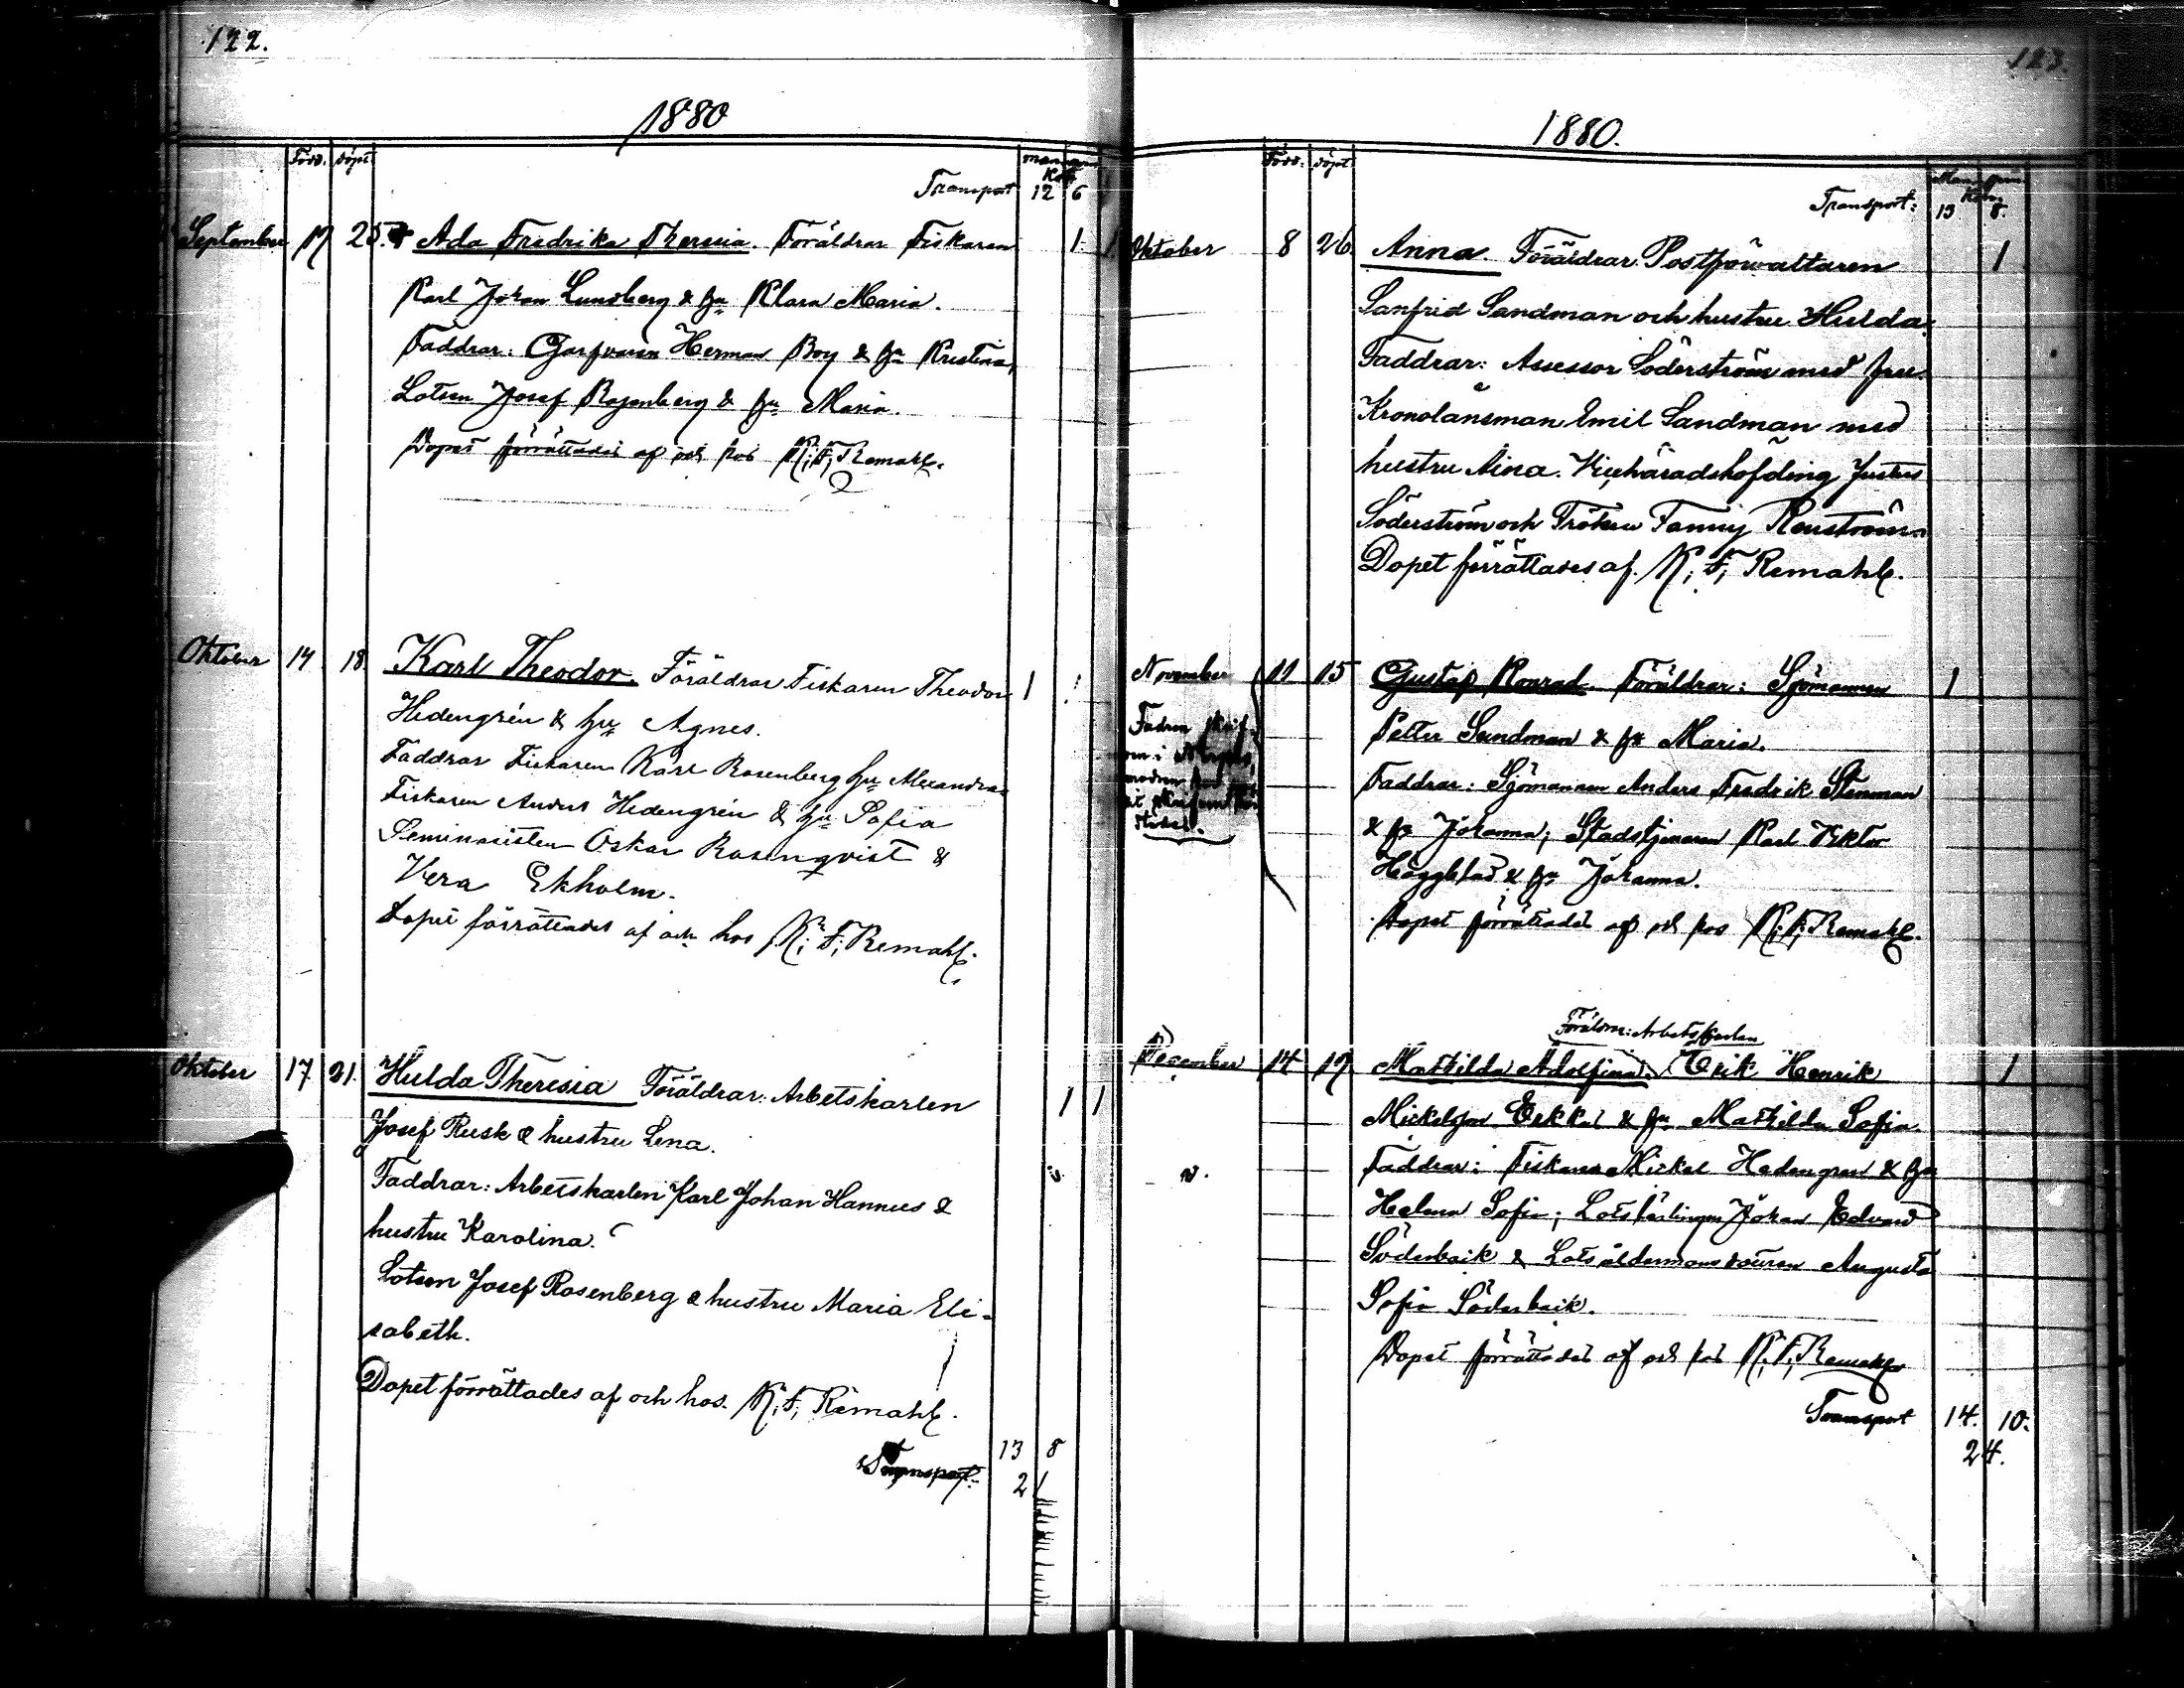 122.
1880
Född. Döpt
man qvin
Kön
Transport 12 6
September 17 25. Ada Fredrika Theresia. Föräldrar Fiskaren 1
Karl Johan Lundberg & hu Klara Maria.
Faddrar: Garfvaren Herman Boy & hu Kristina,
Lotsen Josef Rosenberg & hu Maria.
Dopet förrättades af och hos K; F; Remahl.
Oktober 14 18. Karl Theodor. Föräldrar Fiskaren Theodor 1
Hedengrén & hu Agnes.
Faddrar Fiskaren Karl Rosenberg hu Alexandra
Fiskaren Anders Hedengrén & hu Sofia
Seminaristen Oskar Rosenqvist &
Vera Ekholm.
Dopet förrättades af och hos K; F; Remahl.
Oktober 17 21. Hulda Theresia Föräldrar: Arbetskarlen 1
Josef Rusk & hustru Lena.
Faddrar: Arbetskarlen Karl Johan Hannus &
hustru Karolina.
Lotsen Josef Rosenberg & hustru Maria Eli-
sabeth.
Dopet förrättades af och hos. K; F; Remahl.
Transport 13 8
21
123.
1880.
Född: Döpt
Man Qvin
Kön.
Transport: 13 8.
Oktober 8 26. Anna. Föräldrar Postförvaltaren 1
Sanfrid Sandman och hustru Hulda.
Faddrar: Assessor Söderström med fru.
Kronolänsman Emil Sandman med
hustru Aina. Vicehäradshöfding Justus
Söderström och Fröken Fanny Renström.
Dopet förrättades af. K; F; Remahl.
November 11 15 Gustaf Konrad. Föräldrar: Sjömannen 1
Fadren
modren
Petter Sundman & hu Maria.
Faddrar: Sjömannen Anders Fredrik Stenman
& hu Johanna; Stadstjenaren Karl Viktor
Häggblad & hu Johanna.
Dopet förrättades af och hos K; F; Remahl.
Föräldrar: Arbetskarlen
December 14 19 Mathilda Adolfina. Erik Henrik 1
Mickelsson & hu Mathilda Sofia.
Faddrar: Fiskaren Mickel Hedengren & hu
Helena Sofia; Lotslärlingen Johan Edvard
Söderbaik & Lotsåldermansdottren Augusta
Sofia Söderbaik.
Dopet förrättades af och hos K; F; Remahl
Transport 14. 10.
24.